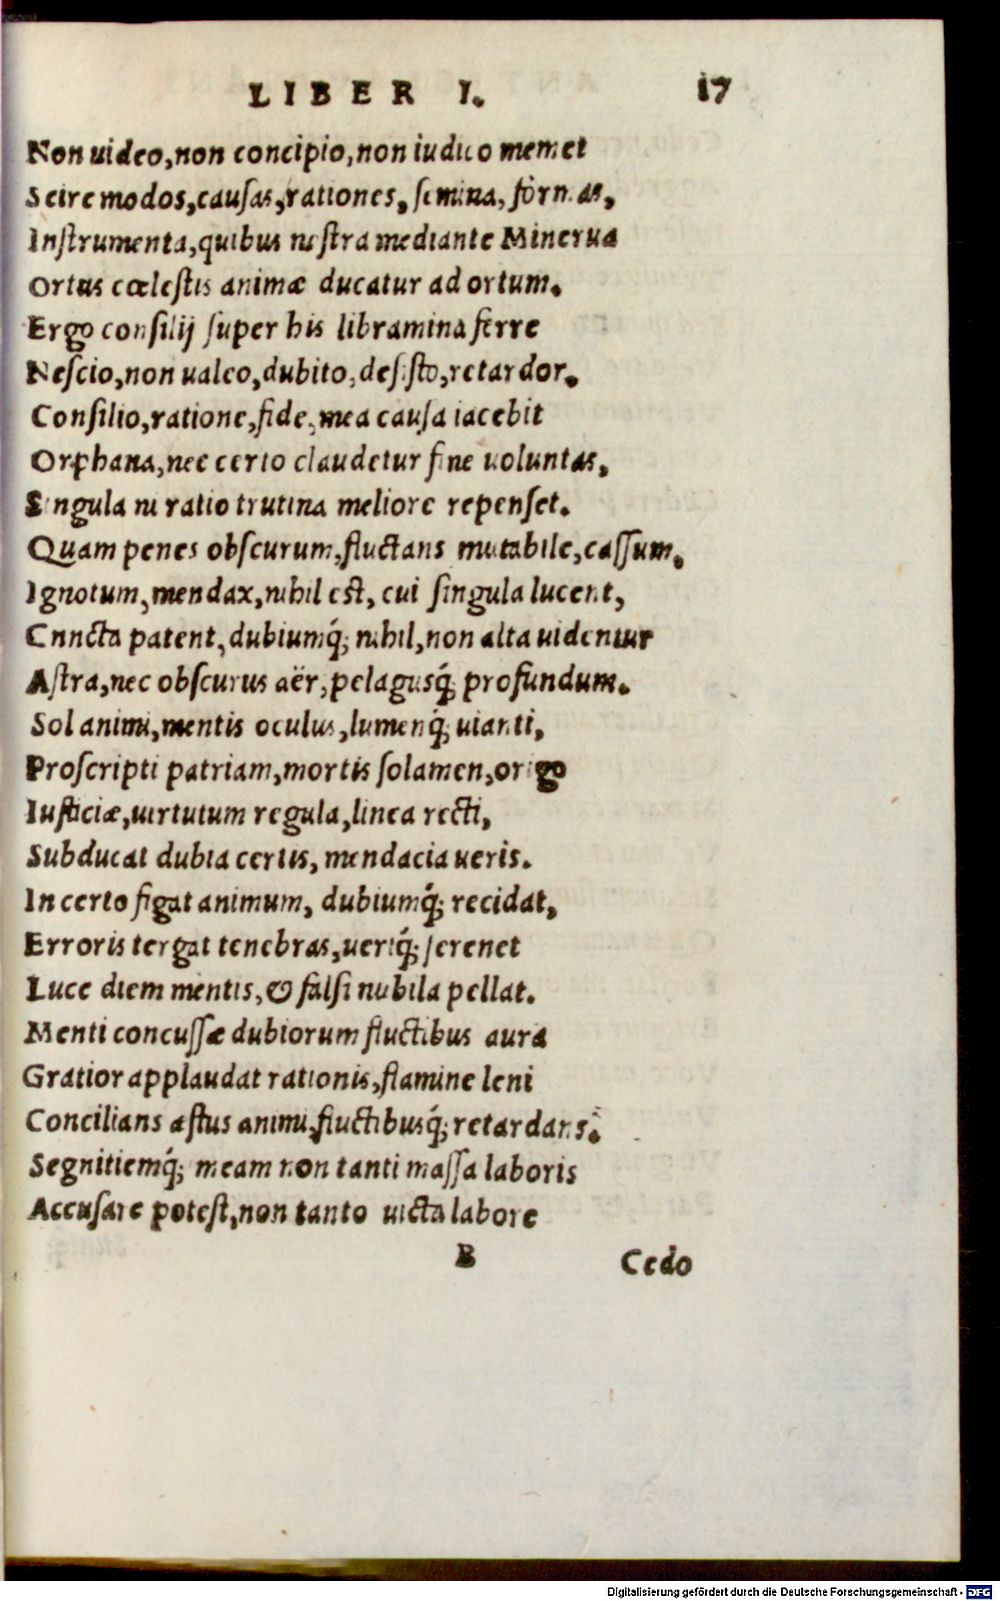 LIBER I. 17
Non uideo,non concipio,non iudico memet
Scire modos,cauſas,rationes, ſemina, formas,
Inſtrumenta,quibus noſtra mediante Minerua
Ortus cœleſtis animæ ducatur ad ortum.
Ergo conſilij ſuper his libramina ferre
Neſcio,non ualeo,dubito,deſiſto,retardor.
Conſilio,ratione,fide,mea cauſa iacebit
Orphana,nec certo claudetur fine uoluntas,
Singula ni ratio trutina meliore repenſet.
Quam penes obſcurum,fluctans mutabile,caſſum,
Ignotum,mendax,nihil eſt, cui ſingula lucent,
Cnncta patent,dubiumq́; nihil,non alta uidentur
Aſtra,nec obſcurus aër,pelagusq́; profundum.
Sol animi,mentis oculus,lumenq́; uianti,
Proſcripti patriam,mortis ſolamen,origo
Iuſticiæ,uirtutum regula,linea recti,
Subducat dubia certis, mendacia ueris.
In certo figat animum, dubiumq́; recidat,
Erroris tergat tenebras,ueriq́; ſerenet
Luce diem mentis,& falſi nubila pellat.
Menti concuſſæ dubiorum fluctibus aura
Gratior applaudat rationis,flamine leni
Concilians æſtus animi,fluctibusq́; retardans.
Segnitiemq́; meam non tanti maſſa laboris
Accuſare poteſt,non tanto uicta labore
B Cedo
Digitalisierung gefördert durch die Deutsche Forschungsgemeinschaft - DFG